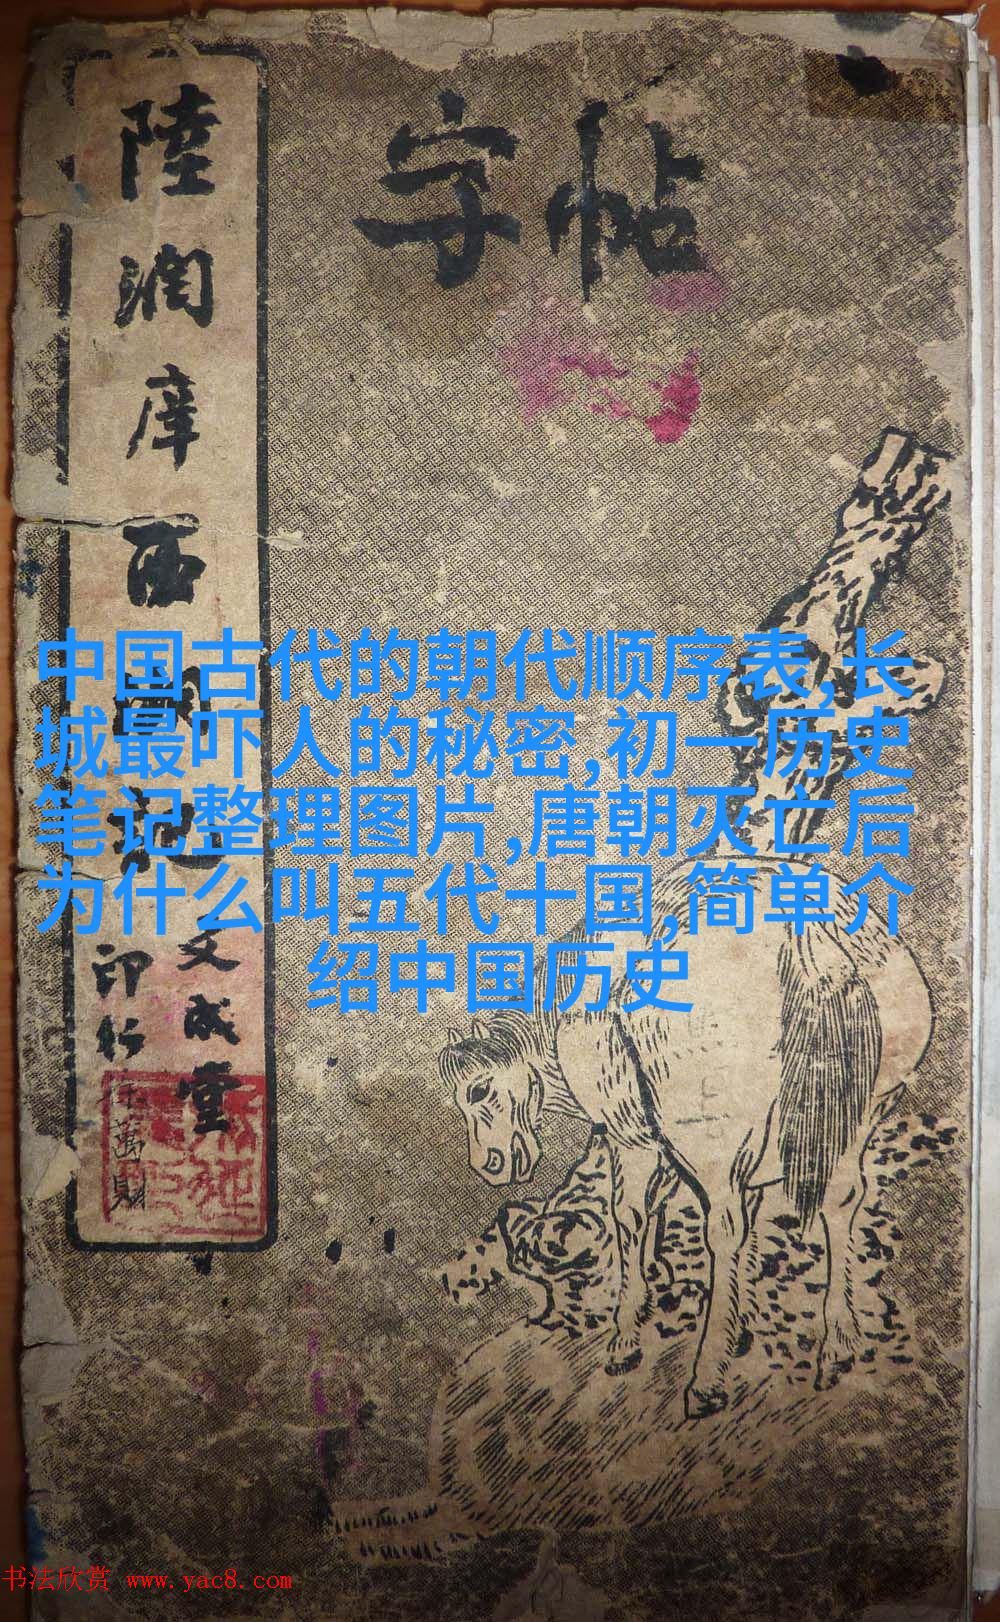 字帖
陸润庠西湖记
文成堂
印行
徐萬財
中国古代的朝代顺序表,长
城最吓人的秘密,初一历史
笔记整理图片,唐朝灭亡后
为什么叫五代十国,简单介
绍中国历史
书法欣赏 www.yac8.com